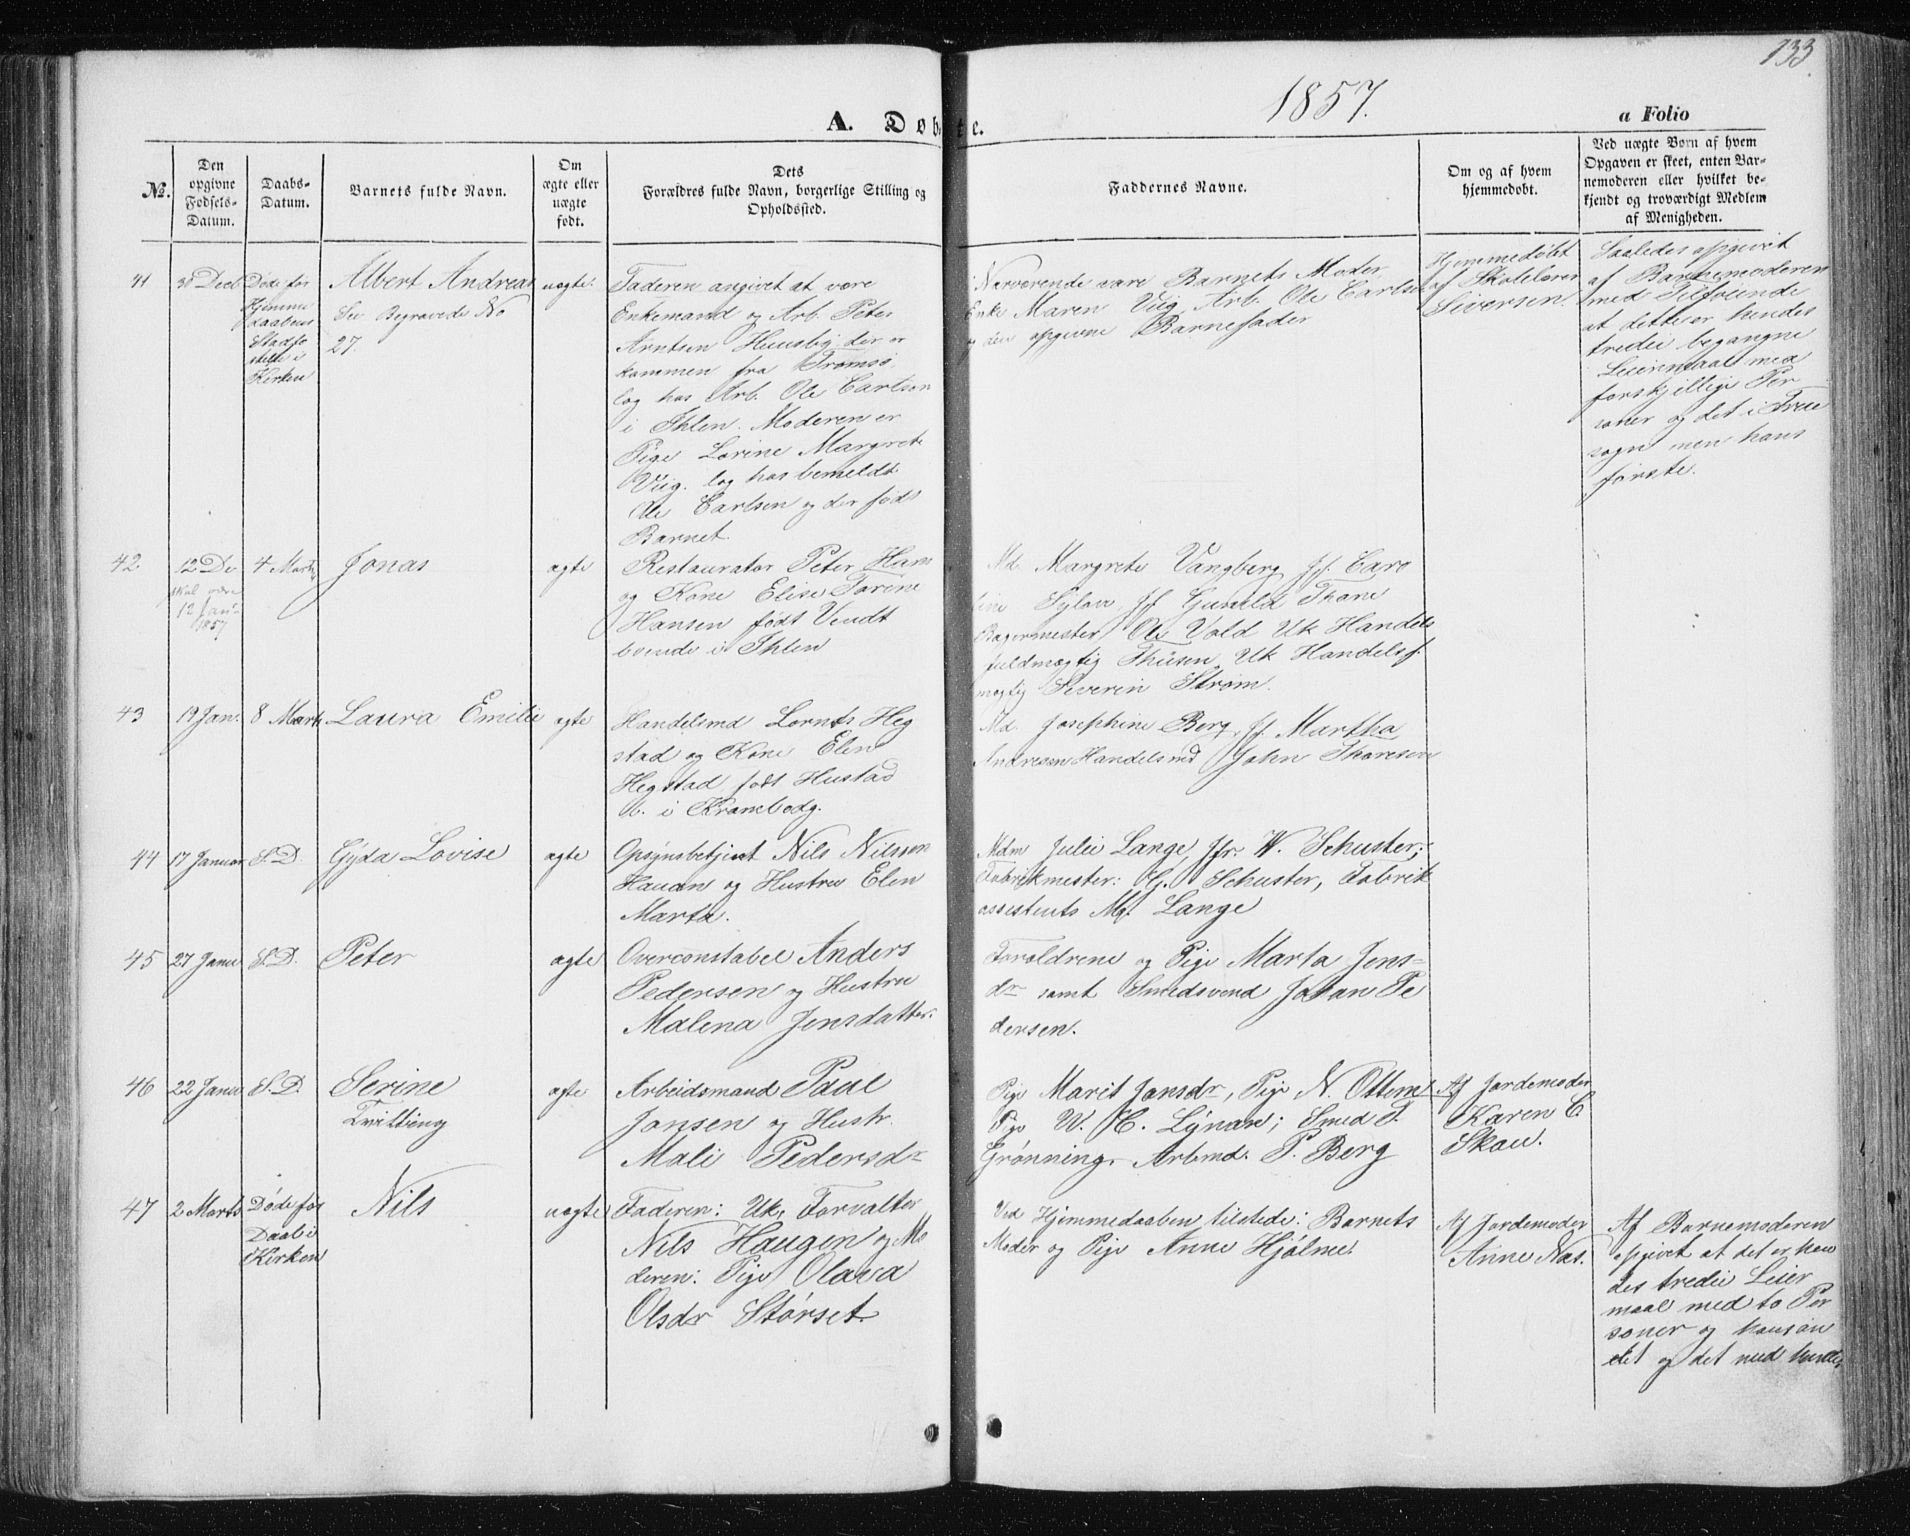 133.
1857.
A. Døbte.
a Folio
No.
Den opgivne Fødsels-Datum.
Daabs-Datum.
Barnets fulde Navn.
Om ægte eller uægte født.
Dets Forældres fulde Navn, borgerlige Stilling og Opholdssted.
Faddernes Navne.
Om og af hvem hjemmedøbt.
Ved uægte Børn af hvem Opgaven er skeet, enten Barnemoderen eller hvilket bekjendt og troværdigt Medlem af Menigheden.
41
30 Decb
Døde før
Hjemme
daabens
Stadfæ
stelse i
Kirken
Albert Andreas
See Begravede No
27.
uægte
Faderen angivet at være
Enkemand og Arb. Peter
Arntsen Huusby der er
kommen fra Tromsø
log hos Arb. Ole Carlsen
i Ihlen. Moderen er
Pige Lorine Margrete
Viig. log hos bemeldt
Ole Carlsen og der føds
Barnet.
Nærværende vare Barnets Moder
Enke Maren Viig Arb. Ole Carlsen
og den opgivne Barnefader
Hjemmedøbt
af Skolelærer
Siversen.
Saaledes opgivet
af Barnemoderen
med Tilføiende
at dette er hendes
tredie begangne
Leiermaal med
forskjellige Per
soner og det i Frue
sogn men hans
første.
42.
12 De
skal være
12 Jan.
1857
4 Marts
Jonas
ægte
Restauratør Peter Han
og Kone Elise Torine
Hansen født Vendt
boende i Ihlen
Md. Margrete Vangberg Jf. Caro
line Sylow Jf Gunild Thane
Bagermester Ole Vold Uk Handels
fuldmægtig Thüsen Uk Handelsf.
mægtig Severin Strøm.
43
19 Jan.
8 Marts
Laura Emilie
ægte
Handelsmd Lornts Heg
stad og Kone Elen
Hegstad født Hustad
b. i Krambodg.
Md. Josephine Berg, Jf. Martha
Andresen Handelsmd John Thoresen
44
17 Januar
S.D.
Gyda Lovise
ægte
Opsynsbetjent Nils Nilssen
Hauan og Hustru Elen
Marta.
Mdm Julie Lange, Jfr. W. Schuster;
Fabrikmester: G. Schuster, Fabrik
assistents M. Lange
45
27 Janu
S.D.
Peter
ægte
Overconstabel Anders
Pedersen og Hustru
Malena Jensdatter.
Forældrene og Pige Marta Jens-
dr samt Smedsvend Johan Pe
dersen.
46
22 Janu
S.D.
Serine
Tvilling
ægte
Arbeidsmand Paul
Jonsen og Hustr.
Mali Pedersdr
Pige Marit Jonsdr, Pige N. Ottem
Pige W. H. Lynan; Smed T.
Grønning, Arbmd. P. Berg
Af Jordemoder
Karen C.
Skau.
47
2 Marts
Døde før
Daab i
Kirken
Nils
uægte
Faderen: Uk, Forvalter
Nils Haugen og Mo
deren: Pige Olava
Olsdr Størset.
Ved Hjemmedaaben tilstede: Barnets
Moder og Pige Anne Hjølme.
Af Jordemoder
Anne Næs.
Af Barnemoderen
opgivet at det er hen
des tredie Leier
maal med to Per
soner og hans an
det og det med hende